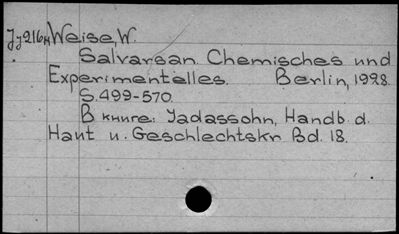 Jy216м Weise W.
Salvarsan Chemisches und
Experimentelles. Berlin, 1928.
S.499-570.
В книге: Jadassohn, Handb. d.
Haut u. Geschlechtskr. Bd. 18.